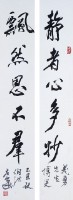 靜者心多妙
飄然思不群